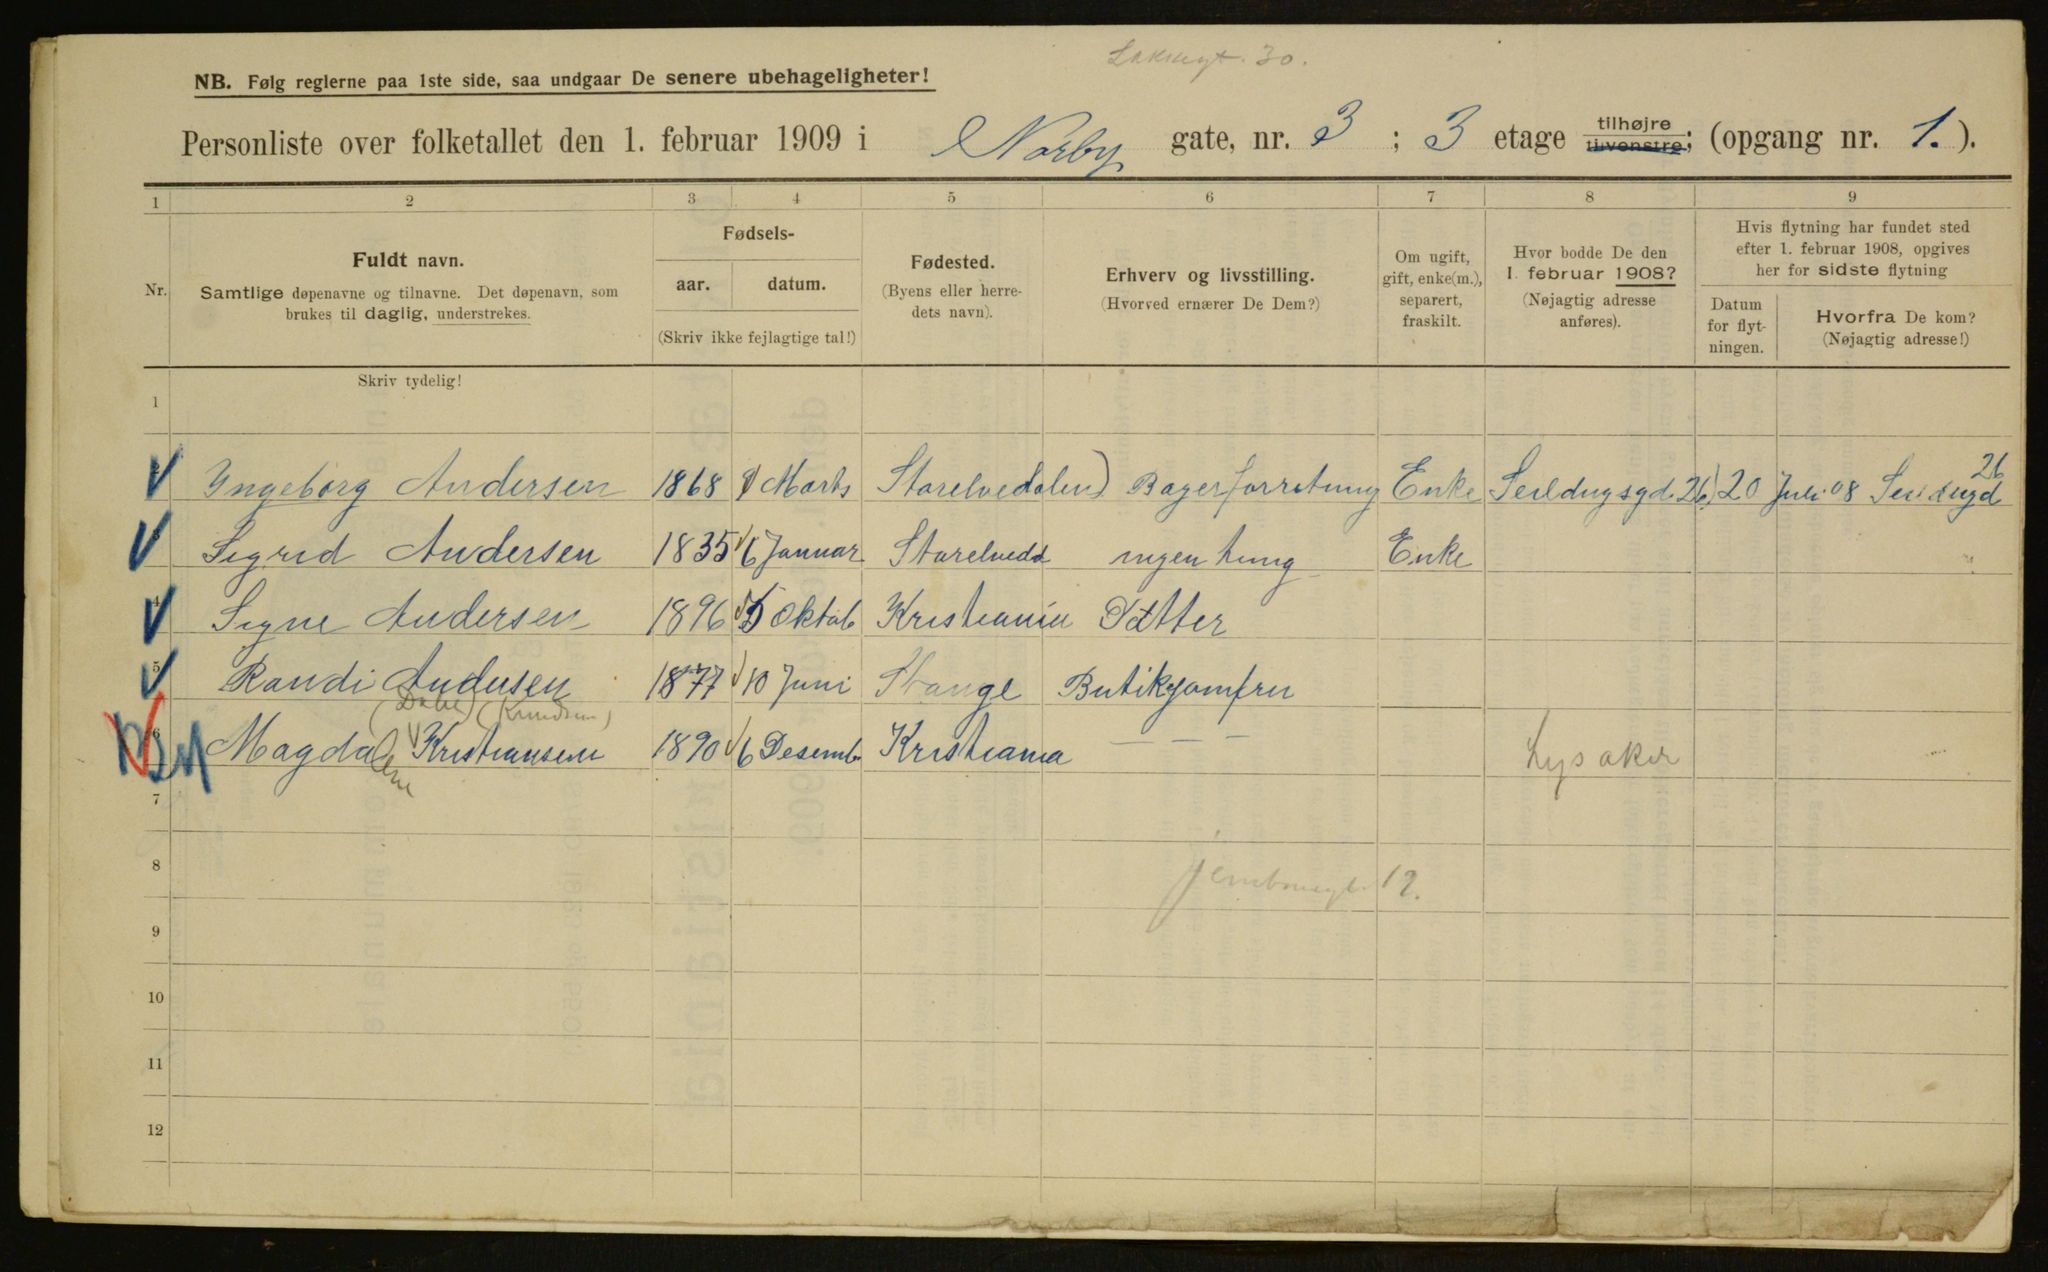 Lakkegt. 30.
NB. Følg reglerne paa 1ste side, saa undgaar De senere ubehageligheter!
Personliste over folketallet den 1. februar 1909 i Norby gate, nr. 3 ; 3 etage tilhøjre tilvenstre; (opgang nr. 1.).
1 2 3 4 5 6 7 8 9
Nr.
Fuldt navn.
Samtlige døpenavne og tilnavne. Det døpenavn, som
brukes til daglig, understrekes.
Fødsels-
aar. datum.
(Skriv ikke fejlagtige tal!)
Fødested.
(Byens eller herre-
dets navn).
Erhverv og livsstilling.
(Hvorved ernærer De Dem?)
Om ugift,
gift, enke(m.),
separert,
fraskilt.
Hvor bodde De den
1. februar 1908?
(Nøjagtig adresse
anføres).
Hvis flytning har fundet sted
efter 1. februar 1908, opgives
her for sidste flytning
Datum
for flyt-
ningen.
Hvorfra De kom?
(Nøjagtig adresse!)
Skriv tydelig!
1
2 Yngeborg Andersen 1868 Marts Storelvedalen) Enke Seildugsgd. 26 20 Juli 08 26
3 Sigrid Andersen 1835 6 Januar Storelvedd ingen Enke
4 Signe Andersen 1896 5 Oktob Kristiania Datter
5 Randi Andersen 1877 10 Juni Stange Butikjomfru
(Knudsen)
6 Magdalene Kristiansen 1890 6 Desemb. Kristiania — — — Lysaker
7
8
12.
9
10
11
12